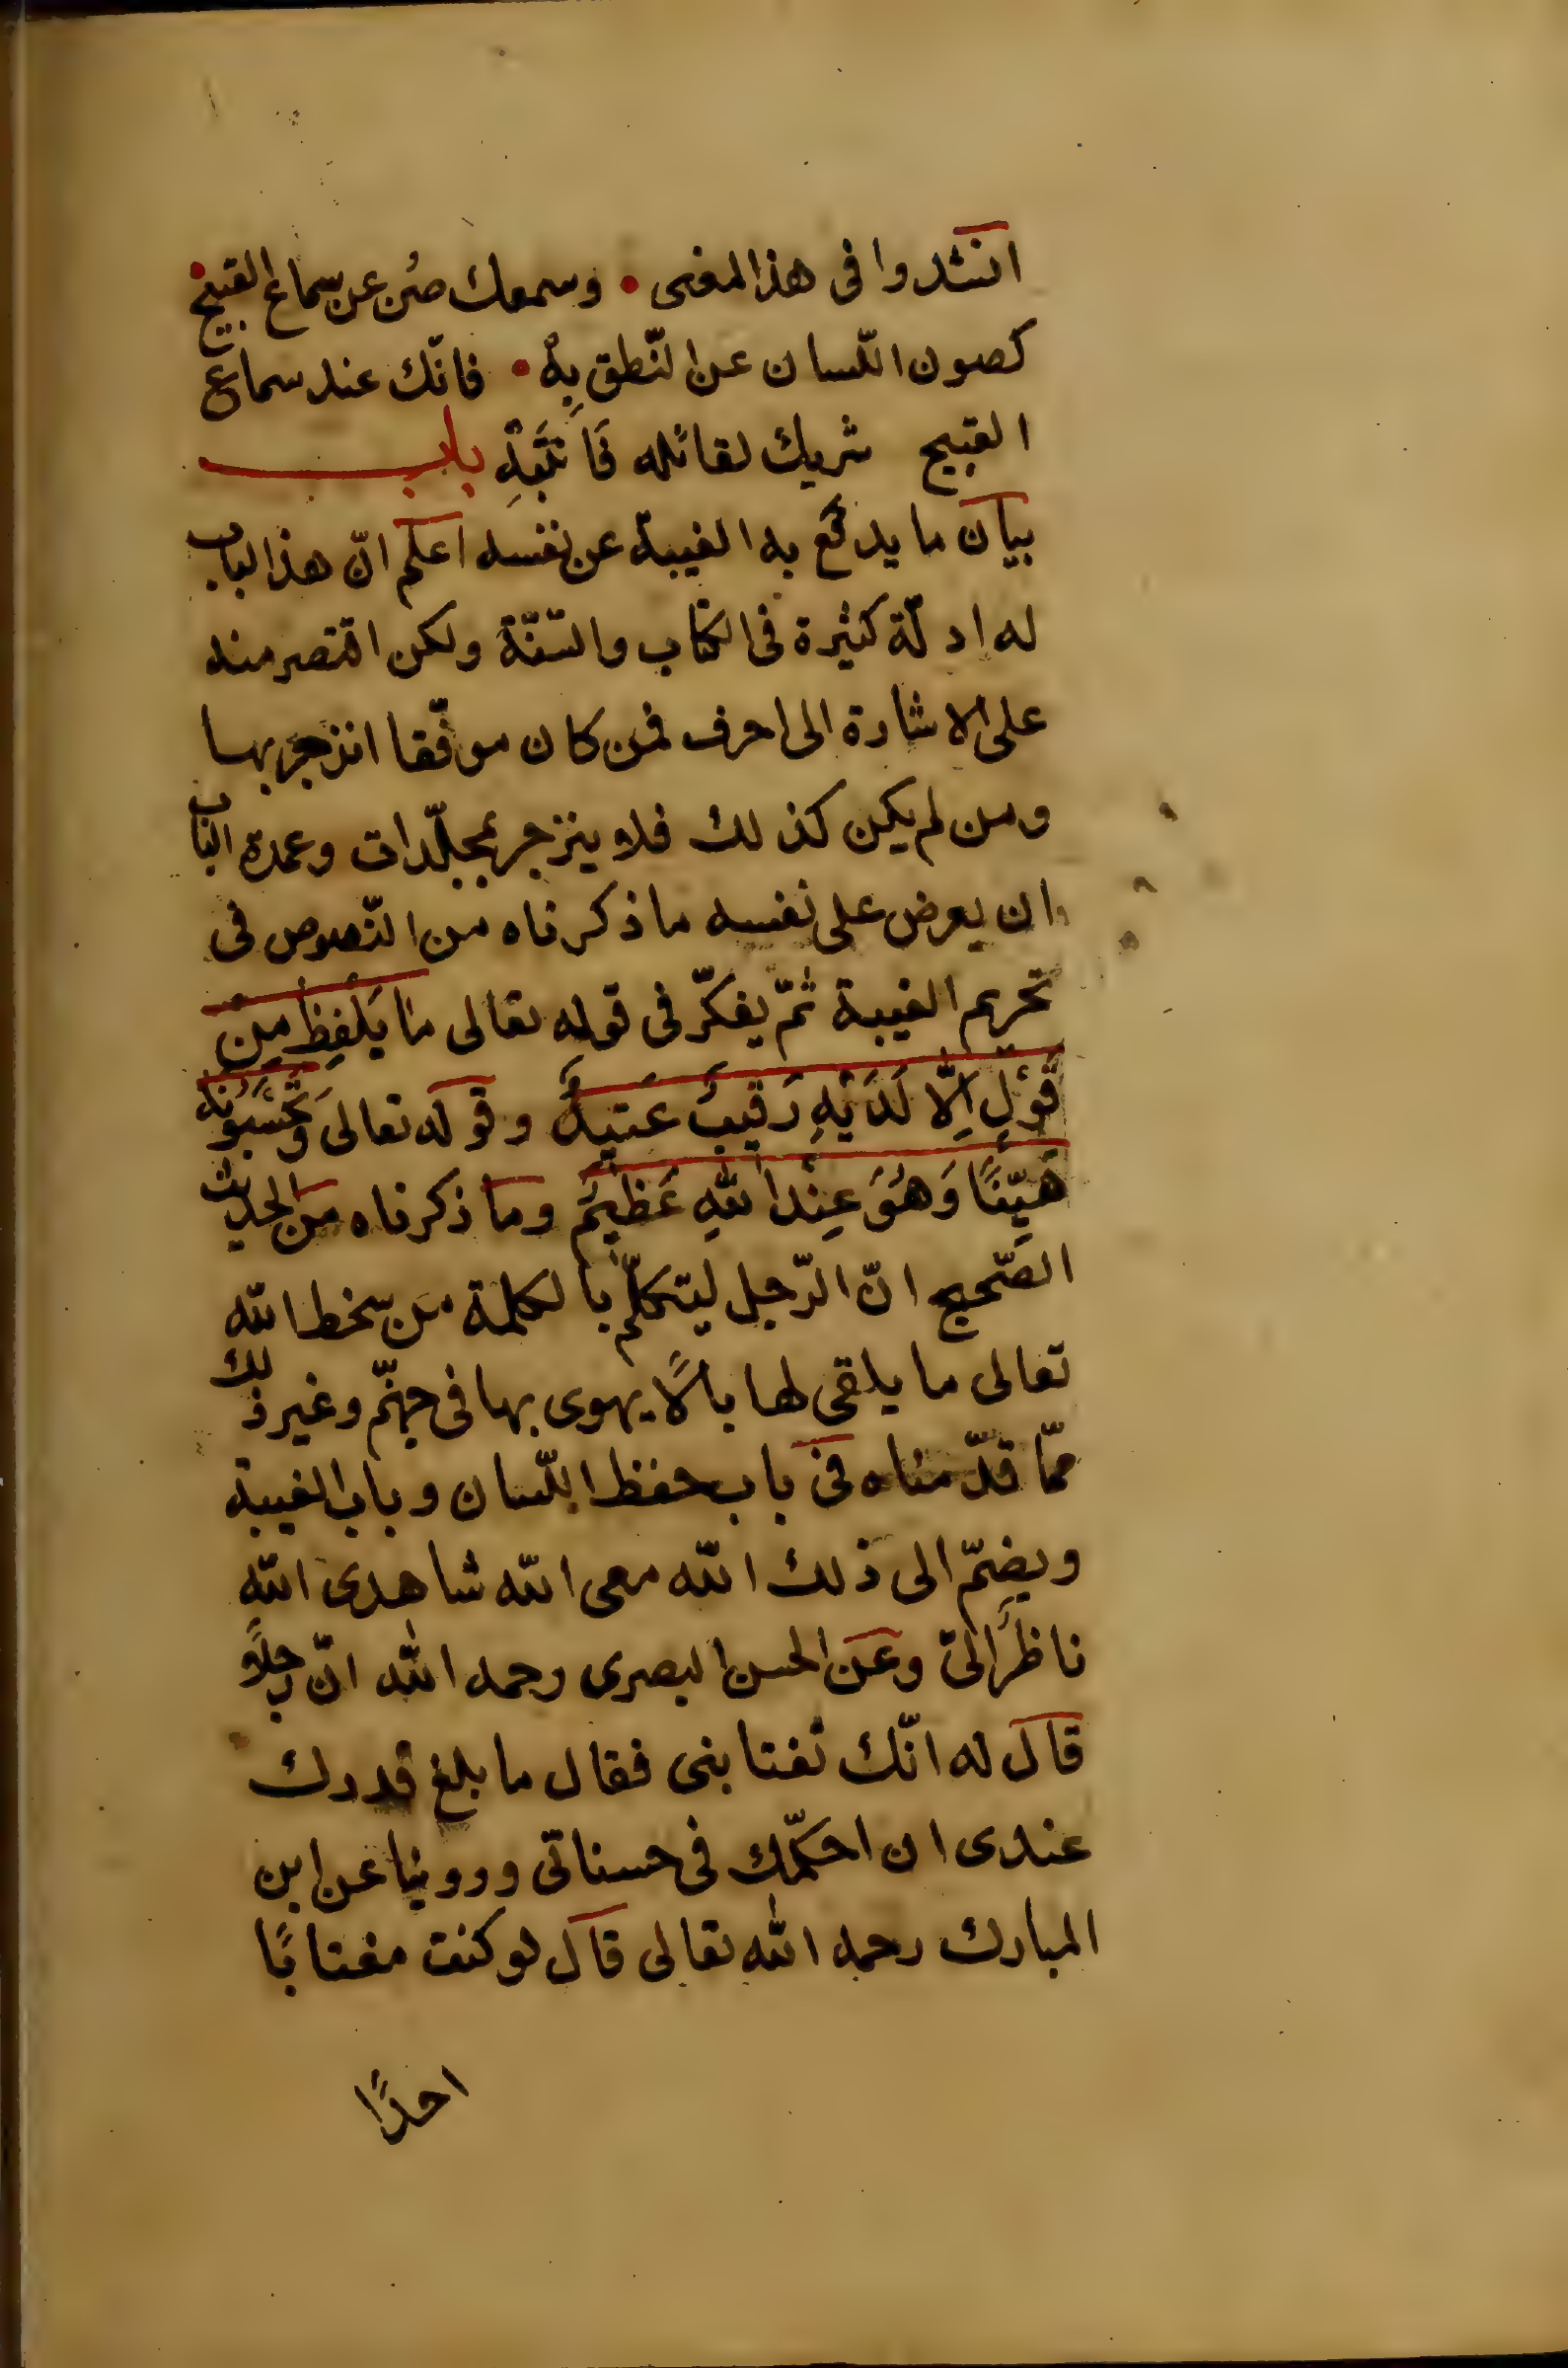 انشدوا فى هذا المعنى • وسمعك صُن عن سماع القبيح •
كصون اللّسان عن النّطق بِهْ • فانّك عند سماع
القبيح شريك لقائله فَانْتَبِهْ باب
بيان ما يدفع به الغيبة عن نفسه اعلم انّ هذا الباب
له ادلّة كثيرة فى الكتاب والسّنّة ولكن اقتصر منه
على الاشارة الى احرف فمن كان موفّقا انزجر بها
ومن لم يكن كذلك فلا ينزجر بمجلّدات وعمدة الباب
ان يعرض على نفسه ما ذكرناه من النّصوص فى
تحريم الغيبة ثمّ يفكّر فى قوله تعالى مَا يَلْفِظُ مِنْ
قَوْلٍ اِلَّا لَدَيْهِ رَقِيبٌ عَتِيدٌ وقوله تعالى وَتَحْسَبُونَهُ
هَيِّنًا وَهُوَ عِنْدَ اللّٰهِ عَظِيمٌ وما ذكرناه من الحديث
الصّحيح انّ الرّجل ليتكلّم بالكلمة من سخط الله
تعالى ما يلقى لها بالًا يهوى بها فى جهنّم وغير ذلك
ممّا قدّمناه فى باب حفظ اللّسان وباب الغيبة
ويضمّ الى ذلك الله معى الله شاهدى الله
ناظر الىّ وعن الحسن البصرى رحمه الله انّ رجلاً
قال له انّك تغتابنى فقال ما بلغ قدرك
عندى ان احكّمك فى حسناتى وروينا عن ابن
المبارك رحمه الله تعالى قال لو كنت مغتابًا
احدًا